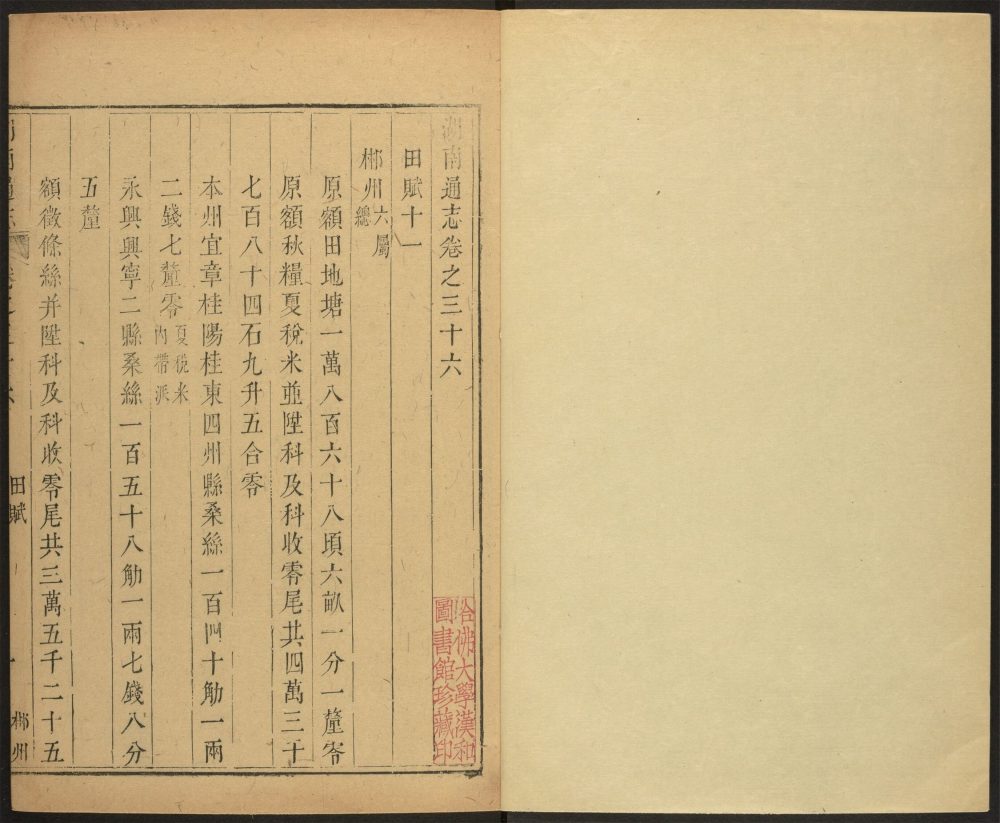 湖南通志卷之三十六
田賦十一
郴州六屬總
原額田地塘一萬八百六十八頃六畝一分一釐零
原額秋糧夏稅米並陞科及科收零尾共四萬三千
七百八十四石九升五合零
本州宜章桂陽桂東四州縣桑絲一百四十觔一兩
二錢七釐零夏稅米內帶派
永興興寧二縣桑絲一百五十八觔一兩七錢八分
五釐
額徵條絲并陞科及科收零尾共三萬五千二十五
田賦
一
郴州
哈佛大學漢和
圖書館珍藏印